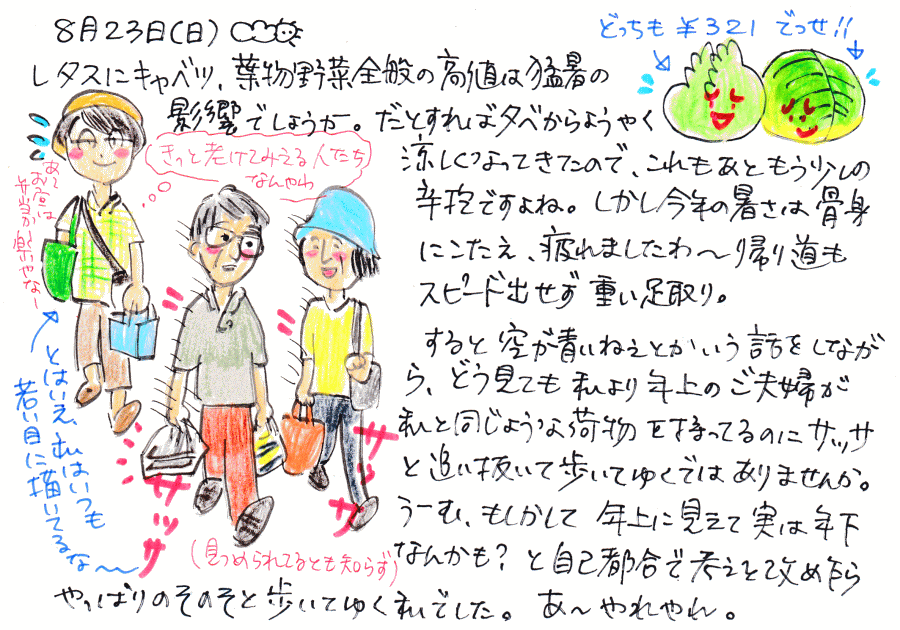 8月23日(日)
どっちも ¥321 でっせ!!
レタスにキャベツ、葉物野菜全般の高値は猛暑の
影響でしょうか。だとすれば夕べからようやく
涼しくなってきたので、これもあともう少しの
辛抱ですよね。しかし今年の暑さは骨身
にこたえ、疲れましたわ〜帰り道も
スピード出せず重い足取り。
きっと老けてみえる人たち
なんやわ
あ〜
お昼は
弁当が楽いやな〜
すると空が青いねえとかいう話をしなが
ら、どう見ても私より年上のご夫婦が
私と同じような荷物を持ってるのにサッサ
と追い抜いて歩いてゆくではありませんか。
うーむ、もしかして年上に見えて実は年下
なんかも?と自己都合で考えを改めたら
やっぱりのそのそと歩いてゆく私でした。あ〜やれやれ。
とはいえ、私はいつも
若い目に描いてるな〜
サッサ
サッサ
(見つめられてるとも知らず)